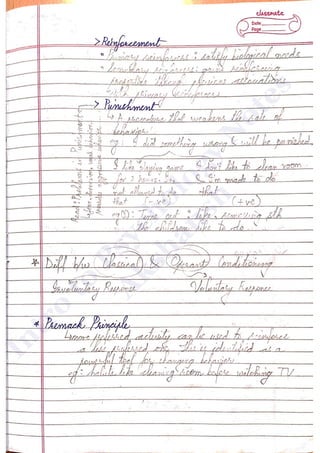 classmate
Date
Page
> Reinforcement
• Primary reinforcers : satisfy biological needs
• Secondary reinforcers : gains reinforcing
properties through previous associations
with primary reinforcers
> Punishment
↳ A procedure that weakens the rate of
behavior.
eg : I did something wrong & will be punished.
I like playing game & don't like to clean room
for 2 hours & I'm made to do
not allowed to do that
that (-ve) (+ve)
eg② : Time out : like removing sth
the children like to do
* Diff b/w Classical & Operant Conditioning
Involuntary Response Voluntary Response
* Premack Principle
↳ more preferred activity can be used to reinforce
a less preferred one. This is identified as a
powerful tool for changing behavior.
eg : habit like cleaning room before watching TV